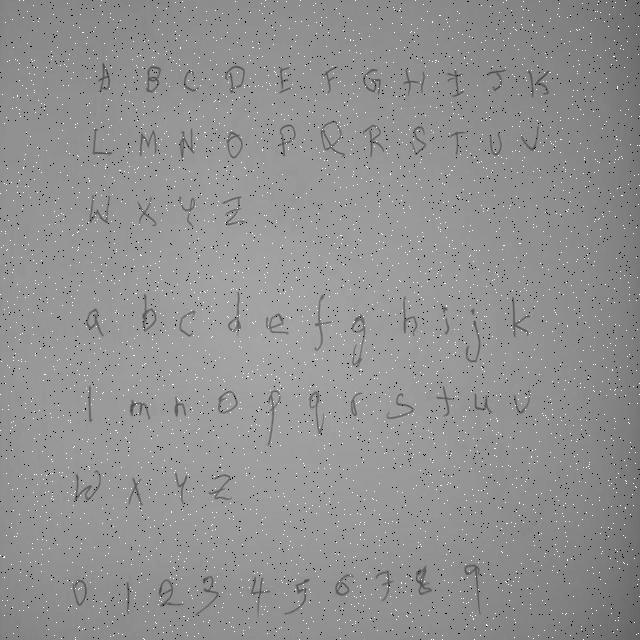 A B C D E F G H I J K
L M N O P Q R S T U V
W X Y Z
a b c d e f g h i j k
l m n o p q r s t u v
w x y z
0 1 2 3 4 5 6 7 8 9